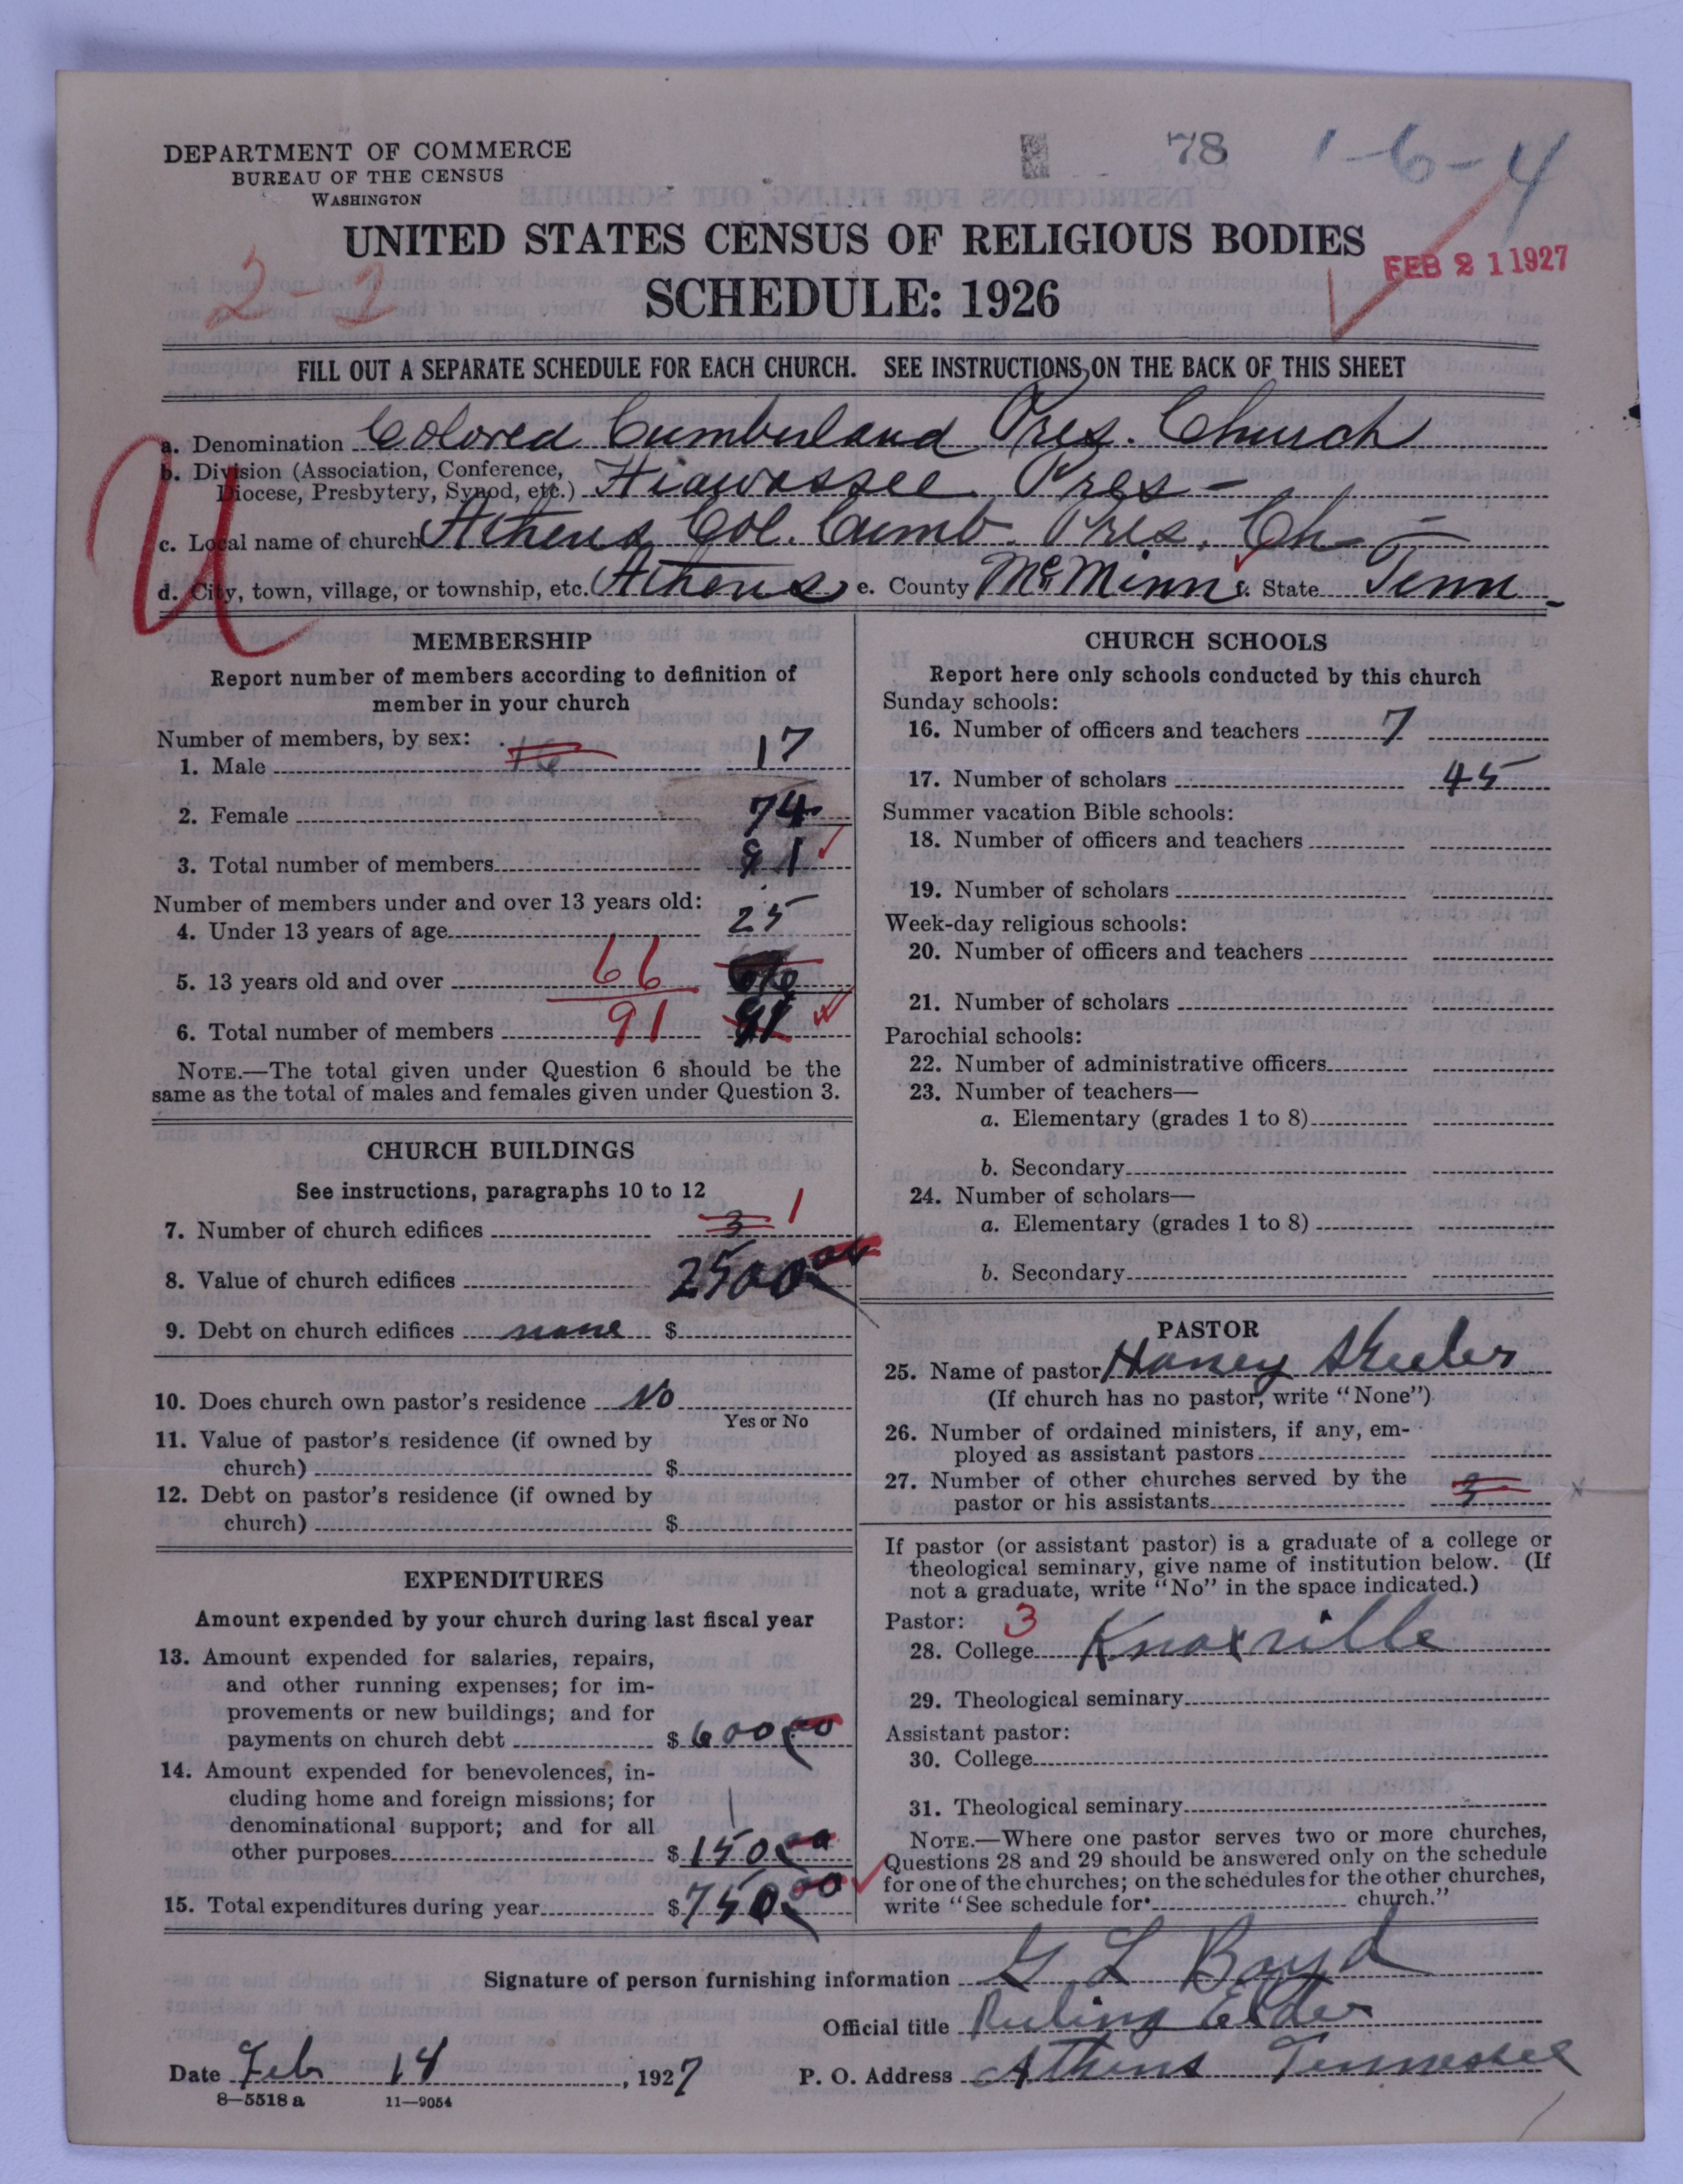 DEPARTMENT OF COMMERCE
BUREAU OF THE CENSUS
WASHINGTON
78
1-6-4
UNITED STATES CENSUS OF RELIGIOUS BODIES
SCHEDULE: 1926
FEB 21 1927
2-2
FILL OUT A SEPARATE SCHEDULE FOR EACH CHURCH. SEE INSTRUCTIONS ON THE BACK OF THIS SHEET
U
a. Denomination Colored Cumberland Pres. Church
b. Division (Association, Conference,
Diocese, Presbytery, Synod, etc.) Hiawassee Pres-
c. Local name of church Athens Col. Cumb. Pres. Ch-
d. City, town, village, or township, etc. Athens e. County McMinn f. State Tenn
MEMBERSHIP
Report number of members according to definition of
member in your church
Number of members, by sex:
1. Male 17
2. Female 74
3. Total number of members 91
Number of members under and over 13 years old:
4. Under 13 years of age 25
5. 13 years old and over 66
6. Total number of members 91 91
NOTE.—The total given under Question 6 should be the
same as the total of males and females given under Question 3.
CHURCH BUILDINGS
See instructions, paragraphs 10 to 12
7. Number of church edifices 3 1
8. Value of church edifices 2500 00
9. Debt on church edifices none $
10. Does church own pastor's residence No
Yes or No
11. Value of pastor's residence (if owned by
church) $
12. Debt on pastor's residence (if owned by
church) $
EXPENDITURES
Amount expended by your church during last fiscal year
13. Amount expended for salaries, repairs,
and other running expenses; for im-
provements or new buildings; and for
payments on church debt $ 600 00
14. Amount expended for benevolences, in-
cluding home and foreign missions; for
denominational support; and for all
other purposes $ 150 00
15. Total expenditures during year $ 750 00
CHURCH SCHOOLS
Report here only schools conducted by this church
Sunday schools:
16. Number of officers and teachers 7
17. Number of scholars 45
Summer vacation Bible schools:
18. Number of officers and teachers
19. Number of scholars
Week-day religious schools:
20. Number of officers and teachers
21. Number of scholars
Parochial schools:
22. Number of administrative officers
23. Number of teachers—
a. Elementary (grades 1 to 8)
b. Secondary
24. Number of scholars—
a. Elementary (grades 1 to 8)
b. Secondary
PASTOR
25. Name of pastor
(If church has no pastor, write "None")
26. Number of ordained ministers, if any, em-
ployed as assistant pastors
27. Number of other churches served by the
pastor or his assistants
If pastor (or assistant pastor) is a graduate of a college or
theological seminary, give name of institution below. (If
not a graduate, write "No" in the space indicated.)
Pastor: 3
28. College Knoxville
29. Theological seminary
Assistant pastor:
30. College
31. Theological seminary
NOTE.—Where one pastor serves two or more churches,
Questions 28 and 29 should be answered only on the schedule
for one of the churches; on the schedules for the other churches,
write "See schedule for church."
Signature of person furnishing information G L Boyd
Official title Ruling Elder
Date Feb 14, 1927 P. O. Address Athens Tennessee
8—5518 a 11—9054